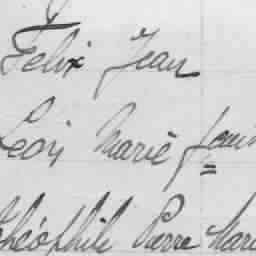 Félix Jean
Léon Marie Louis
Théophile Pierre Marie